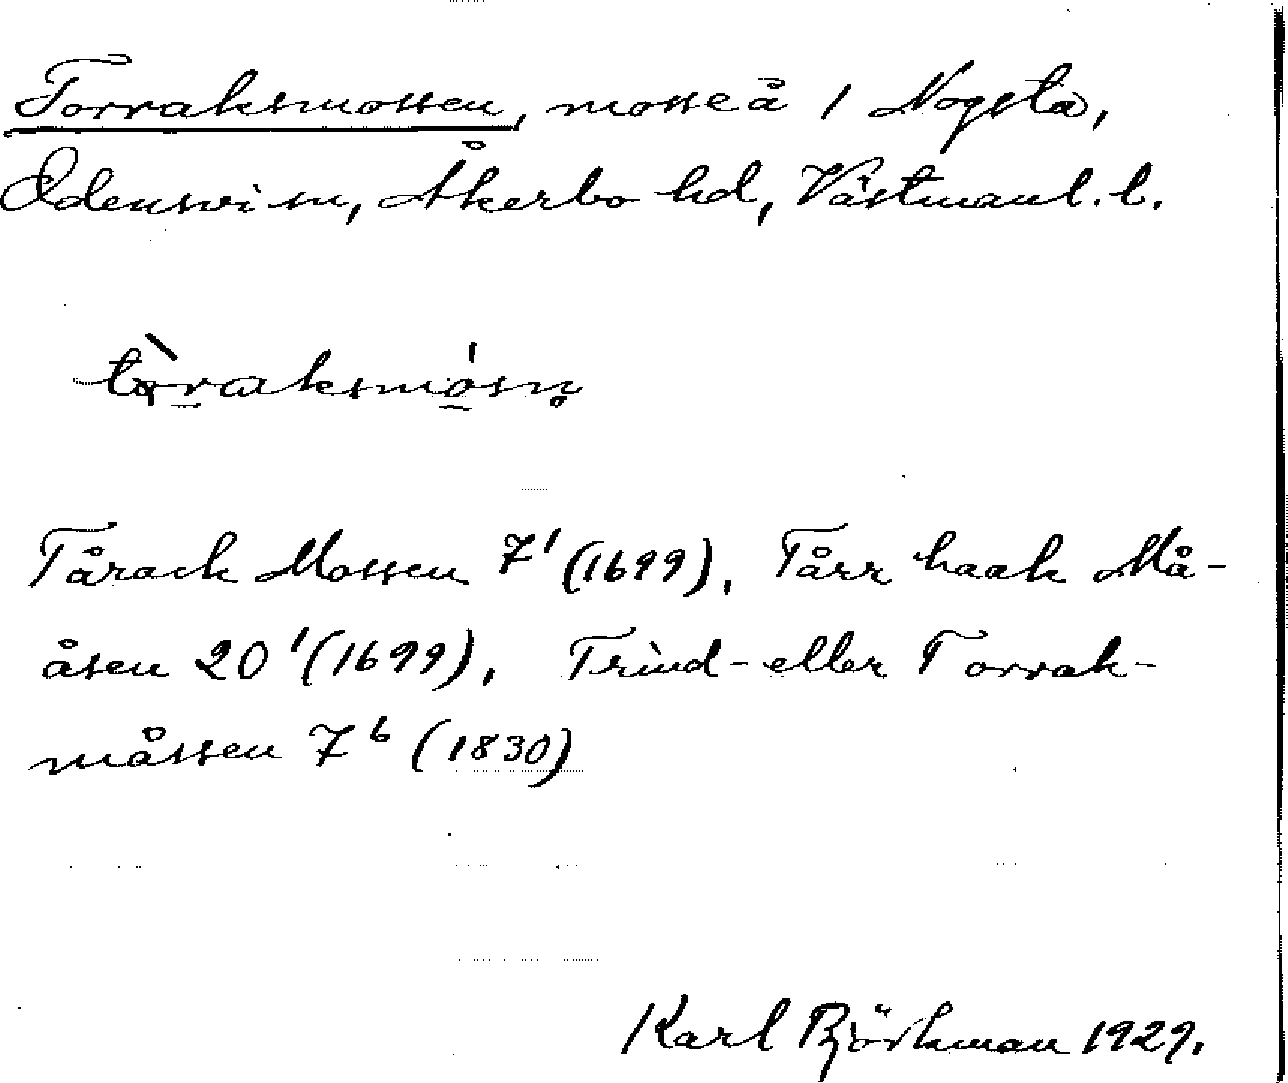 Torraksmossen, mosse å 1 Nogsta,
Odensvi sn, Åkerbo hd, Västmanl. l.
tòraksmósn̥
Tårack Mossen 7¹ (1699), Tårr haak Må-
åsen 20¹ (1699), Trind- eller Torrak-
måssen 7⁶ (1830)
Karl Björkman 1929.